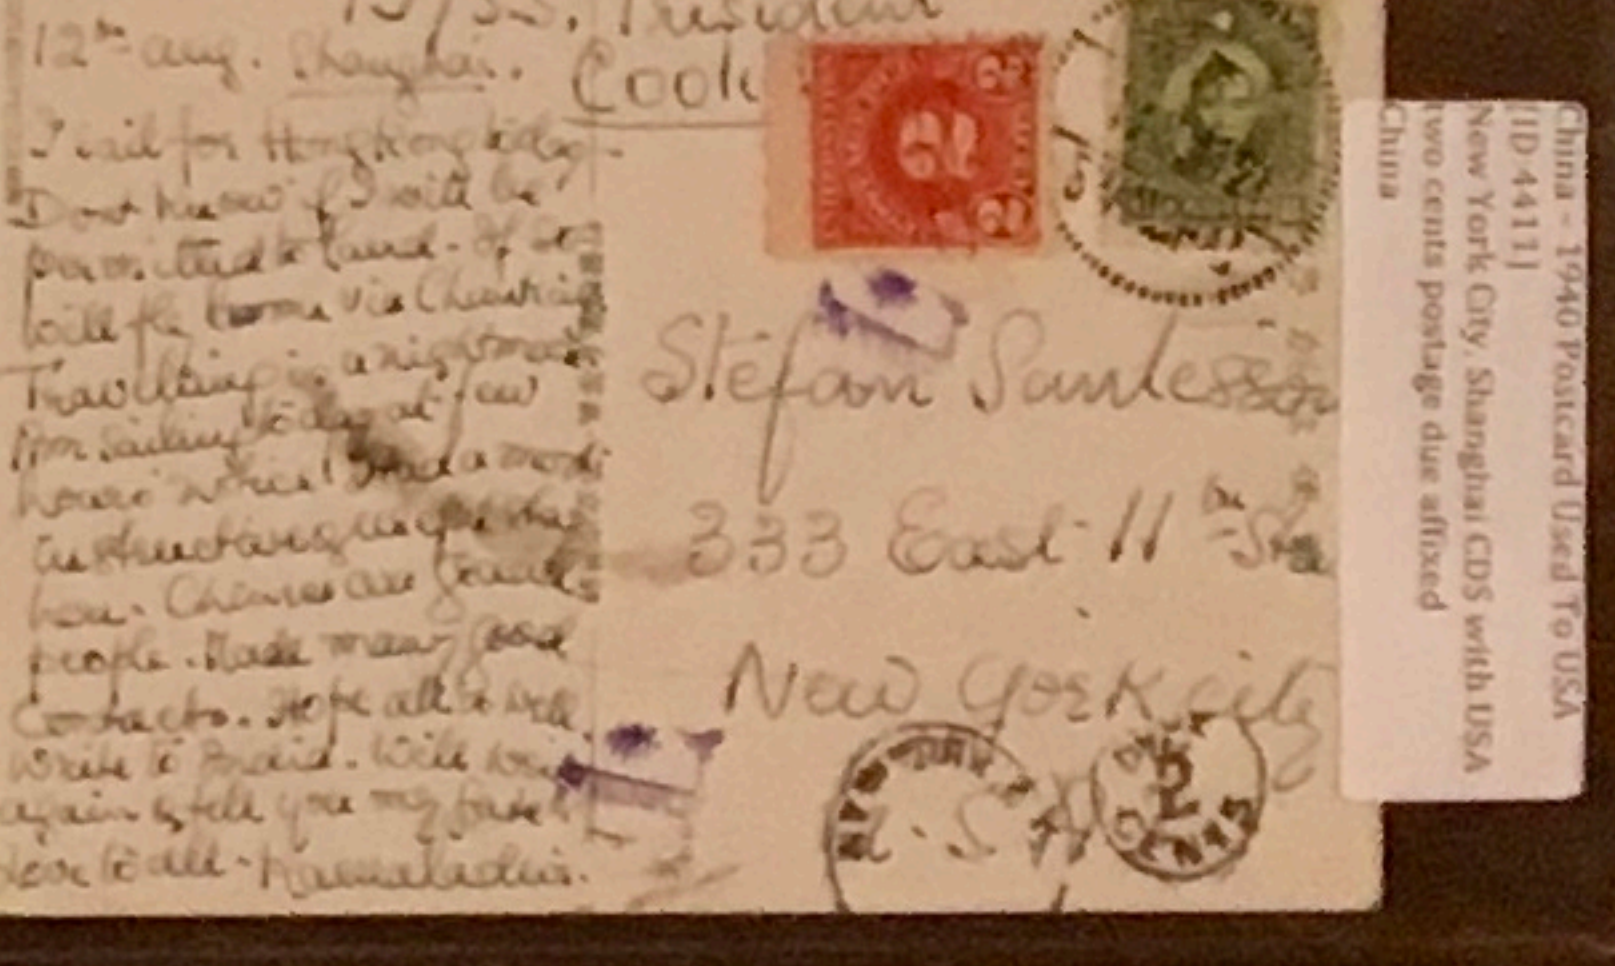 12th Aug. Shanghai.
I sail for Hongkong today.
Dont know if I will be
permitted to land. If so
will fly home via Chunking
Travelling is a nightmare
Am sailing today at few
hours Had a most
instructing
here. Chinese are grand
people. Made many good
Contacts. Hope all is well.
Write to Will write
again & tell you my fate
Love to all - Kamaladevi.
President
Cook
2
2
2
Stefan Santesson
333 East 11th St
New York city
U.S.A
NEW YORK N.Y.
DUE
2
CENTS
China - 1940 Postcard Used To USA
[ID 4411]
New York City, Shanghai CDS with USA
two cents postage due affixed
China